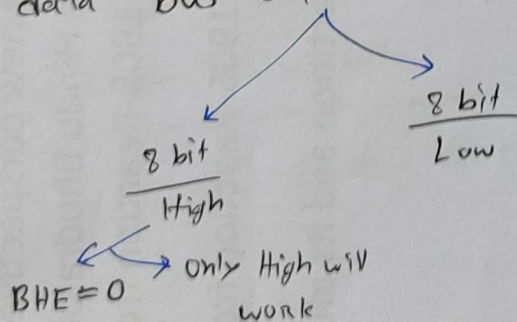 data bus
8 bit
High
8 bit
Low
BHE = 0
only High will
work